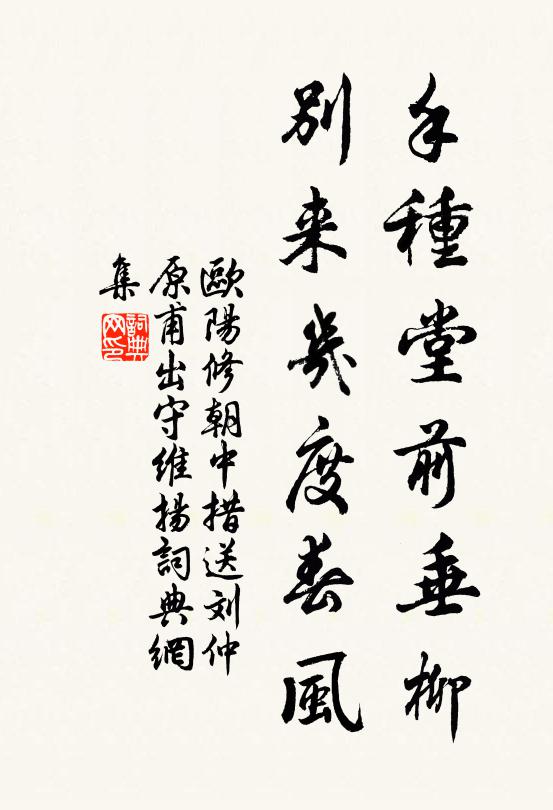 手種堂前垂柳
別来幾度春風
歐陽修朝中措送刘仲
原甫出守維揚詞典網
集
詞典
网印